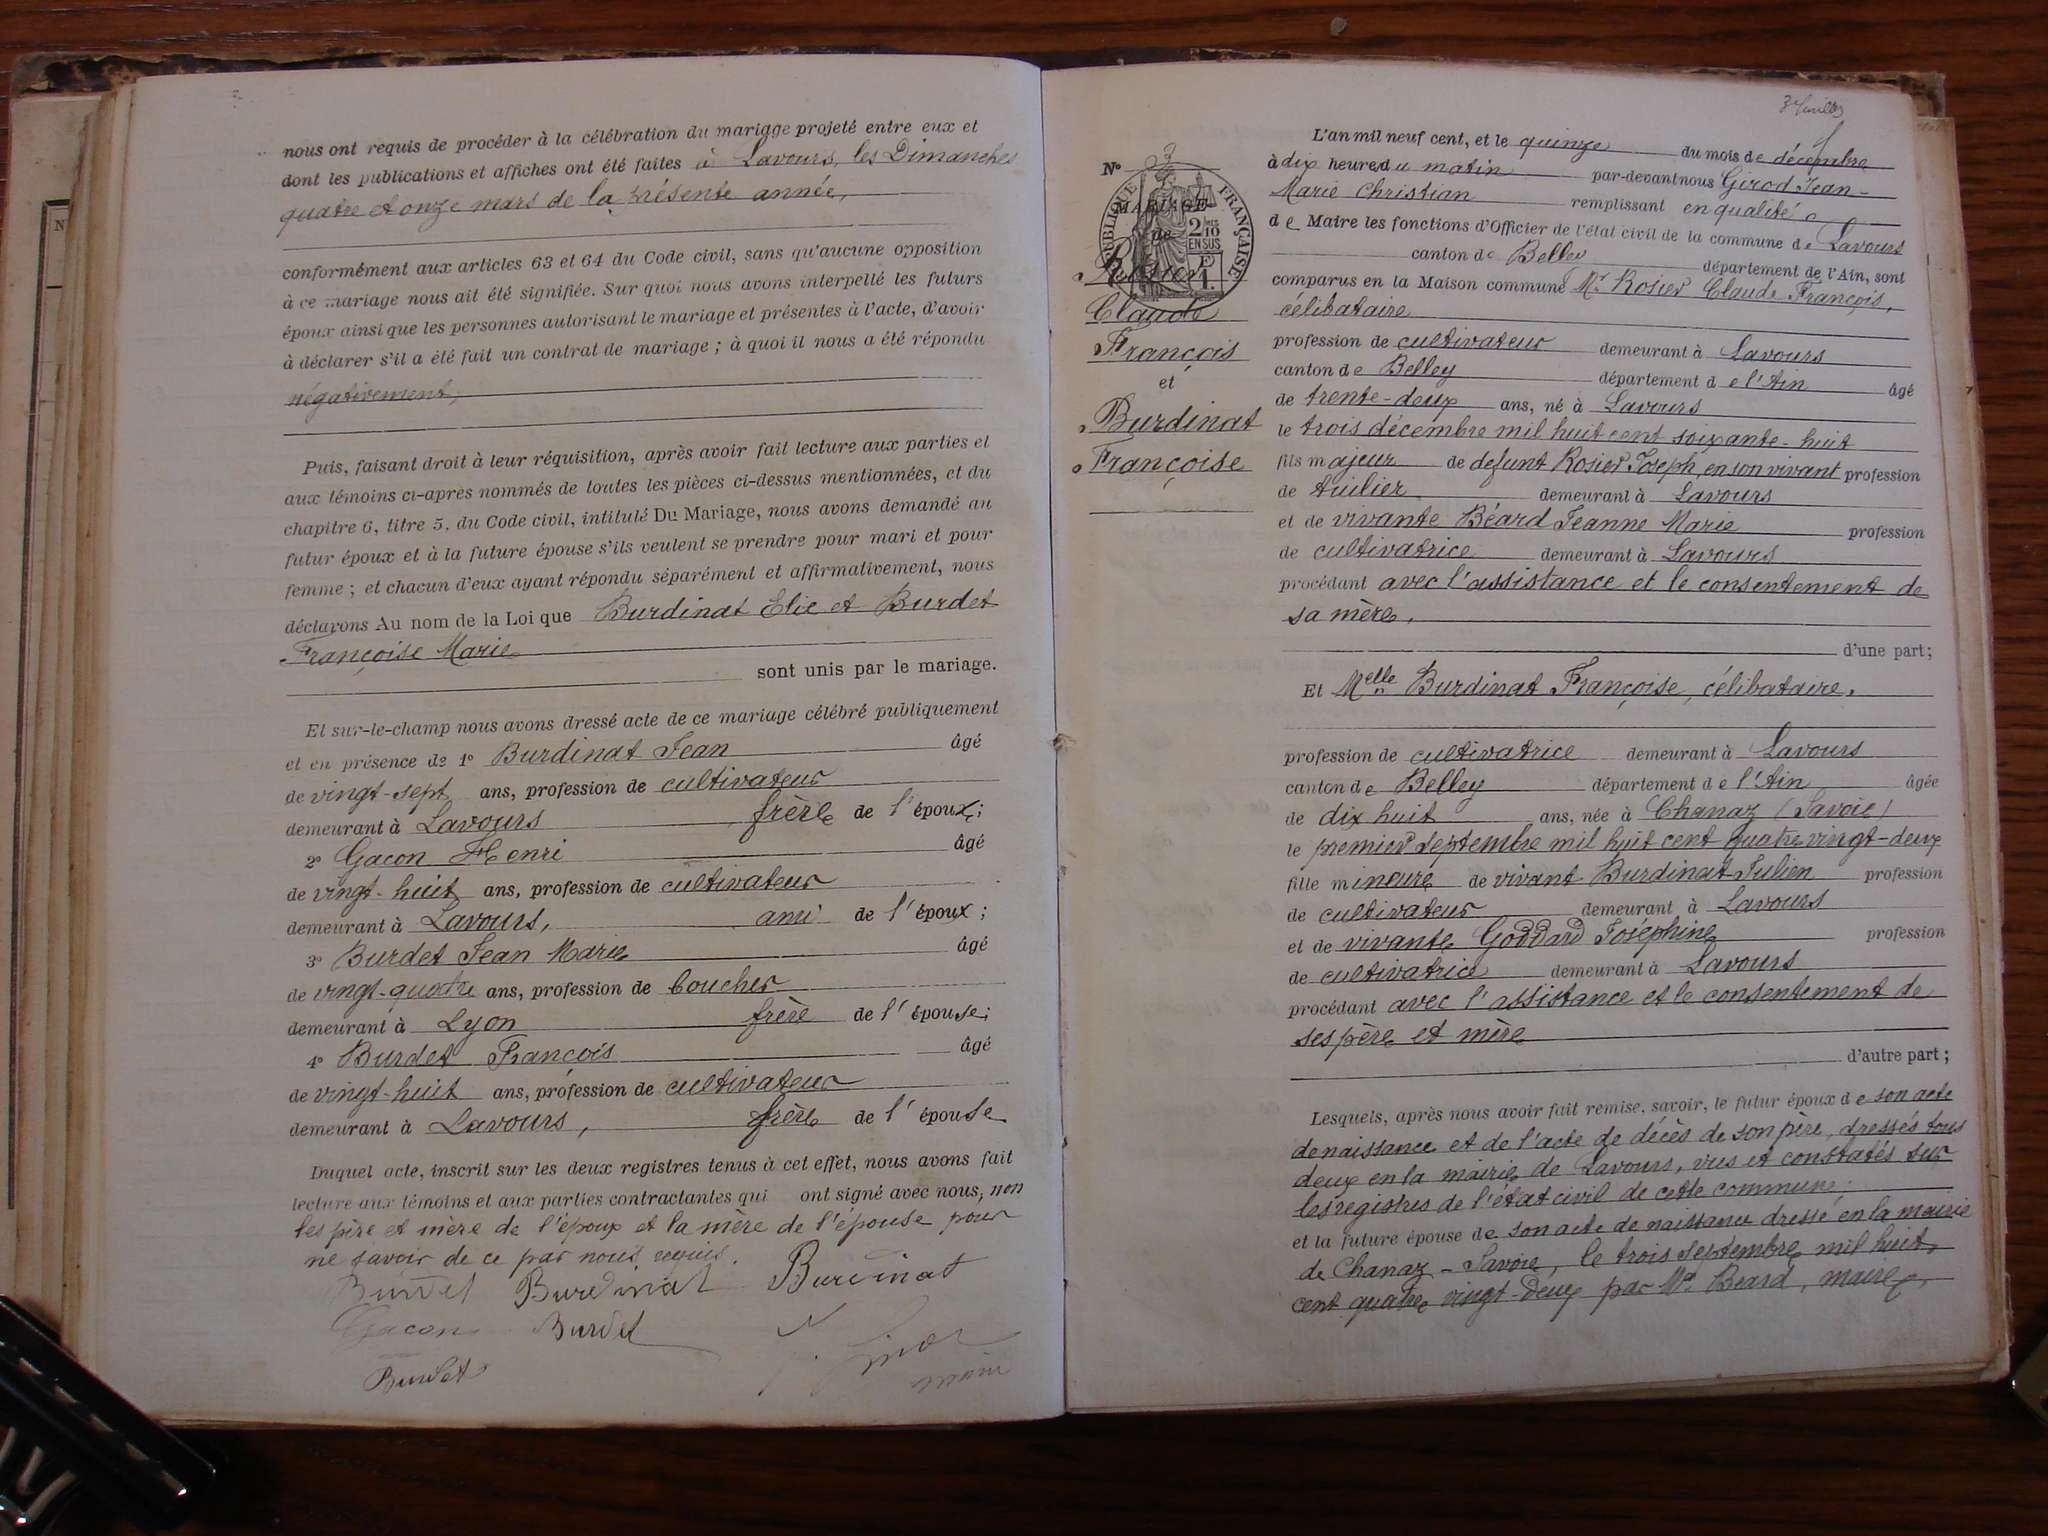 nous ont requis de procéder à la célébration du mariage projeté entre eux et
dont les publications et affiches ont été faites à Lavours, les Dimanches
quatre et onze mars de la présente année,
conformément aux articles 63 et 64 du Code civil, sans qu'aucune opposition
à ce mariage nous ait été signifiée. Sur quoi nous avons interpellé les futurs
époux ainsi que les personnes autorisant le mariage et présentes à l'acte, d'avoir
à déclarer s'il a été fait un contrat de mariage ; à quoi il nous a été répondu
négativement,
Puis, faisant droit à leur réquisition, après avoir fait lecture aux parties et
aux témoins ci-après nommés de toutes les pièces ci-dessus mentionnées, et du
chapitre 6, titre 5. du Code civil, intitulé Du Mariage, nous avons demandé au
futur époux et à la future épouse s'ils veulent se prendre pour mari et pour
femme ; et chacun d'eux ayant répondu séparément et affirmativement, nous
déclarons Au nom de la Loi que Burdinat Elie et Burdet
Françoise Marie
sont unis par le mariage.
Et sur-le-champ nous avons dressé acte de ce mariage célébré publiquement
et en présence de 1° Burdinat Jean âgé
de vingt-sept ans, profession de cultivateur
demeurant à Lavours frère de l'époux;
2° Gacon Henri âgé
de vingt-huit ans, profession de cultivateur
demeurant à Lavours, ami de l'époux ;
3° Burdet Jean Marie âgé
de vingt-quatre ans, profession de boucher
demeurant à Lyon frère de l'épouse;
4° Burdet François âgé
de vingt-huit ans, profession de cultivateur
demeurant à Lavours, frère de l'épouse
Duquel acte, inscrit sur les deux registres tenus à cet effet, nous avons fait
lecture aux témoins et aux parties contractantes qui ont signé avec nous, non
les père et mère de l'époux et la mère de l'épouse pour
ne savoir de ce par nous requis.
Burdet Burdinat Burdinat
Gacon Burdet
Burdet maire
3e feuillet
N° 3
RÉPUBLIQUE FRANÇAISE
2/10
EN SUS
MARIAGE
de
Rosier
Claude
François
et
Burdinat
Françoise
L'an mil neuf cent, et le quinze du mois de décembre
à dix heures du matin par-devant nous Girod Jean-
Marie Christian remplissant en qualité
de Maire les fonctions d'Officier de l'état civil de la commune de Lavours
canton de Belley département de l'Ain, sont
comparus en la Maison commune Mr Rosier Claude François,
célibataire
profession de cultivateur demeurant à Lavours
canton de Belley département de l'Ain âgé
de trente-deux ans, né à Lavours
le trois décembre mil huit cent soixante-huit
fils majeur de defunt Rosier Joseph, en son vivant profession
de tuilier demeurant à Lavours
et de vivante Béard Jeanne Marie profession
de cultivatrice demeurant à Lavours
procédant avec l'assistance et le consentement de
sa mère,
d'une part;
Et Melle Burdinat Françoise, célibataire,
profession de cultivatrice demeurant à Lavours
canton de Belley département de l'Ain âgée
de dix huit ans, née à Chanaz (Savoie)
le premier septembre mil huit cent quatre vingt-deux
fille mineure de vivant Burdinat Julien profession
de cultivateur demeurant à Lavours
et de vivante Goddard Joséphine profession
de cultivatrice demeurant à Lavours
procédant avec l'assistance et le consentement de
ses père et mère
d'autre part ;
Lesquels, après nous avoir fait remise, savoir, le futur époux de son acte
de naissance et de l'acte de décès de son père, dressés tous
deux en la mairie de Lavours, vus et constatés sur
les registres de l'état civil de cette commune.
et la future épouse de son acte de naissance dressé en la mairie
de Chanaz - Savoie, le trois septembre mil huit
cent quatre vingt-deux par Mr Beard, maire,